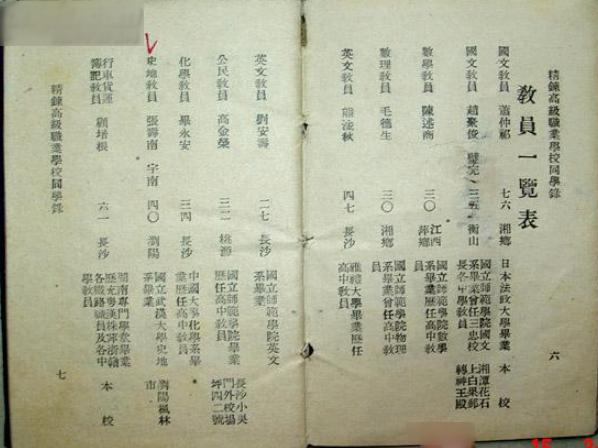 精鍊高級職業學校同學錄
教員一覽表
國文教員 蕭仲祁 七六 湘鄉 日本法政大學畢業 本校
國文教員 趙聚俊 三五 衡山 國立師範學院國文系畢業曾任三忠校長各中學教員 湘潭花石上白果郵轉神王殿
數學教員 陳述商 三〇 江西萍鄉 國立師範學院數學系畢業曾任高中教員
數理教員 毛德生 三〇 湘鄉 國立師範學院物理系畢業曾任高中教員
英文教員 熊 秋 四七 長沙 雅禮大學畢業歷任高中教員
六
英文教員 劉安壽 二七 長沙 國立師範學院英文系畢業
公民教員 高金榮 三二 桃源 國立師範學院畢業歷任高中教員 長沙小吳門外校場坪四二號
化學教員 畢永安 三四 長沙 中國大學化學系畢業歷任高中教員
史地教員 張壽南 字南 四〇 瀏陽 國立武漢大學史地系畢業 瀏陽楓林市
行車貨運簿記教員 顧培根 六一 長沙 湖南專門學校畢業歷充粵漢株 浙贛各鐵路職員及各中學教員 本校
精鍊高級職業學校同學錄
七